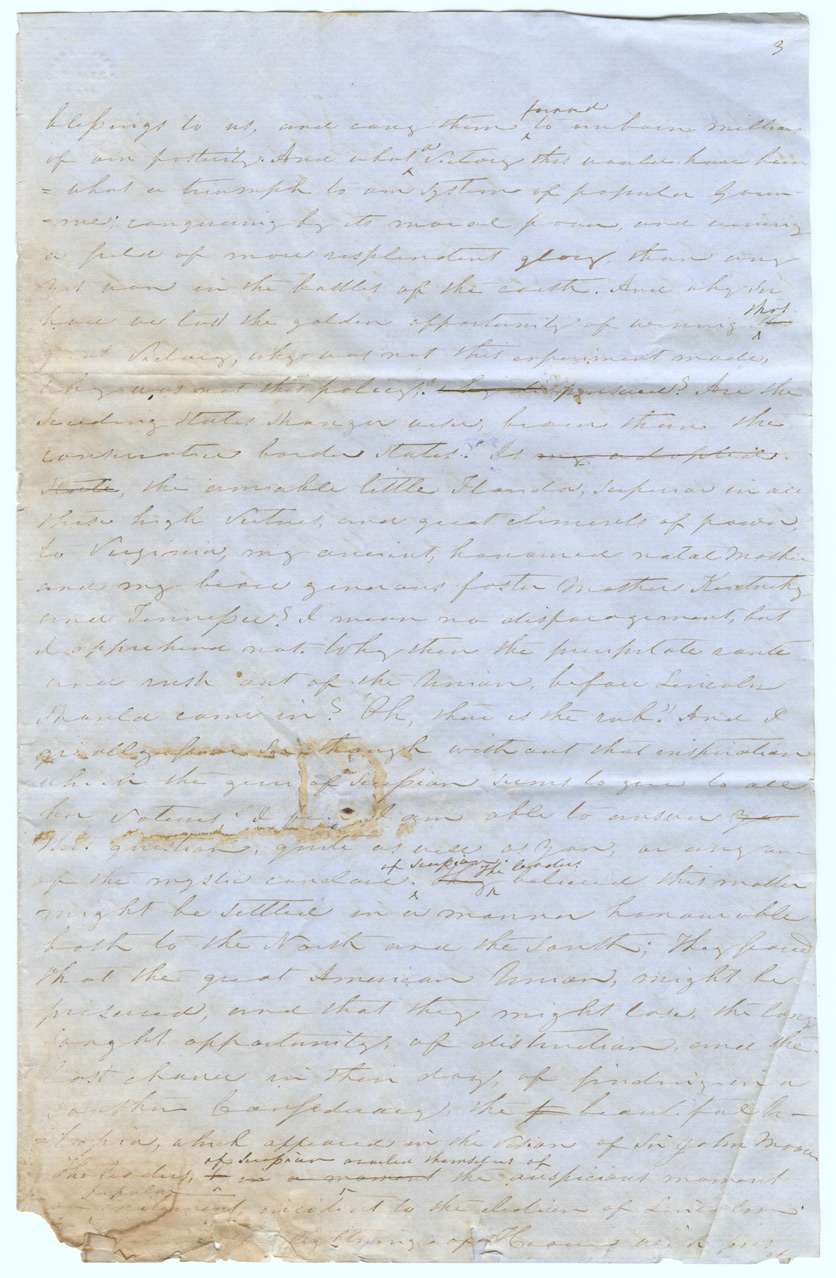 3
blessings to us, and carry them forward to unborn millions
of our posterity. And what a victory this would have been
= what a triumph to our system of popular Govern-
=ment; conquering by its moral power, and winning
a field of more resplendent glory than any
yet won in the battles of the earth. And why Sir
have we lost the golden opportunity of winning that
great Victory, why was not this experiment made,
Why was not this policy, pursued? Are the
Seceding States stronger wiser, braver than the
conservative border States? Is my adopted
State, the amiable little Florida, superior in all
these high virtues, and great elements of power,
to Virginia, my ancient, honoured natal Mother
and my brave generous foster Mothers Kentucky
and Tennessee? I mean no disparagement, but
I apprehend not. Why then the precipitate
and rush out of the Union, before Lincoln
should come in? "Oh, there is the rub." And I
though without that inspiration
which the genius of Secession seems to give to all
her votaries. I am able to answer
this question, quite as well as you, or any one
of the mystic conclave of Secession. They the leaders believed this matter
might be settled in a manner honourable
both to the North and the South; They feared
that the great American Union, might be
preserved, and that they might lose, the long
sought opportunity, of distinction, and the
last chance in their day, of finding in a
Southern Confederacy, the beautiful U-
=topia, which appeared in the vision of Sir
The leaders, of Secession availed themselves of in a moment the auspicious moment
of excitement, incident to the election of Lincoln
of Heaven with